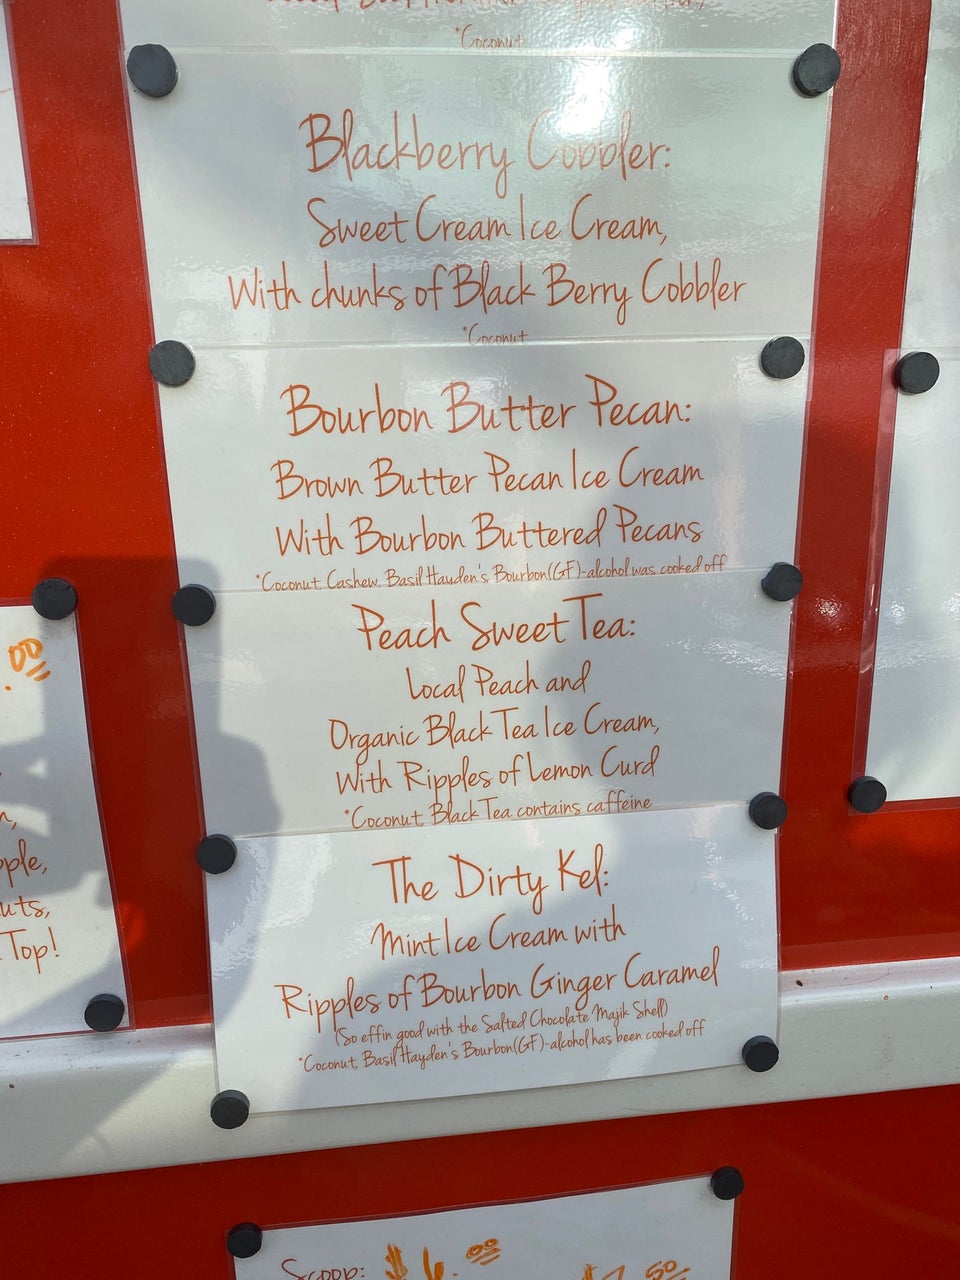 *Coconut
Blackberry Cobbler:
Sweet Cream Ice Cream,
With chunks of Black Berry Cobbler
*Coconut
Bourbon Butter Pecan:
Brown Butter Pecan Ice Cream
With Bourbon Buttered Pecans
*Coconut, Cashew, Basil Hayden's Bourbon(GF)-alcohol was cooked off
Peach Sweet Tea:
Local Peach and
Organic Black Tea Ice Cream,
With Ripples of Lemon Curd
*Coconut, Black Tea contains caffeine
The Dirty Kel:
Mint Ice Cream with
Ripples of Bourbon Ginger Caramel
(So effin good with the Salted Chocolate Majik Shell)
*Coconut, Basil Hayden's Bourbon(GF)-alcohol has been cooked off
.00
Top!
Scoop: $6.00